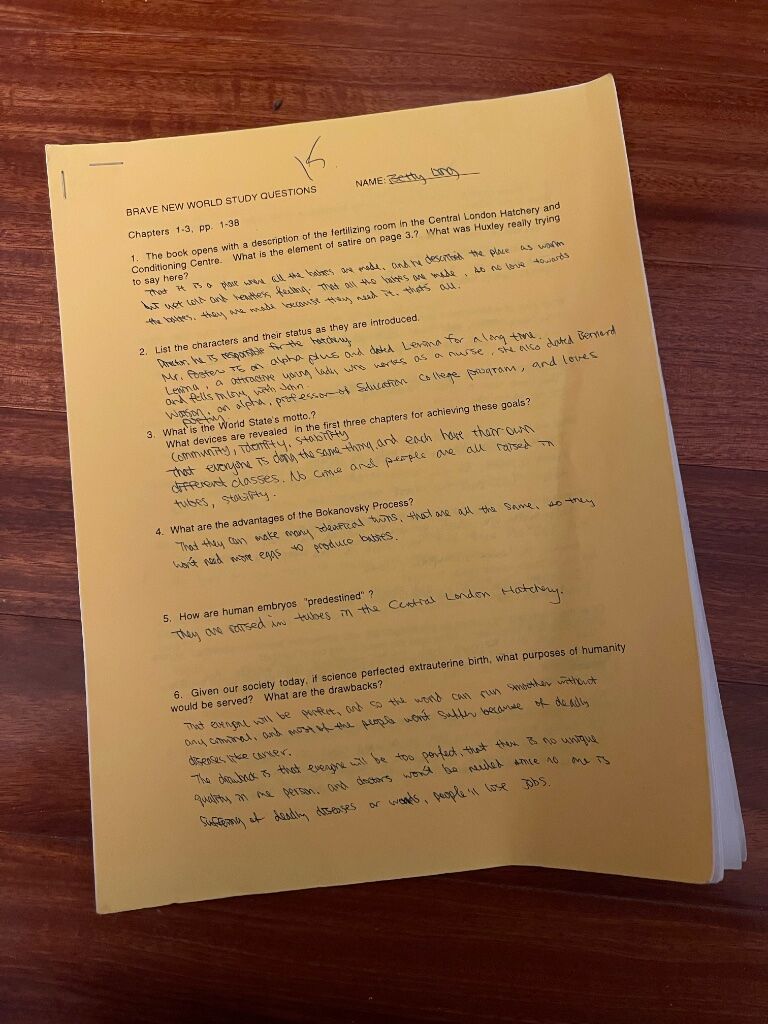 BRAVE NEW WORLD STUDY QUESTIONS
NAME: Betty
Chapters 1-3, pp. 1-38
1. The book opens with a description of the fertilizing room in the Central London Hatchery and
Conditioning Centre. What is the element of satire on page 3.? What was Huxley really trying
to say here?
That it is a place where all the babies are made, and he described the place as warm
but yet cold and heartless feeling. That all the babies are made, so no love towards
the babies, they are made because they need it, thats all.
2. List the characters and their status as they are introduced.
Director, he is responsible for the hatchery
Mr. Foster is an alpha plus and dated Lenina for a long time.
Lenina, a attractive young lady who works as a nurse, she also dated Bernard
and fells in love with John.
Watson, an alpha, professor of Education College program, and loves
poetry
3. What is the World State's motto.?
What devices are revealed in the first three chapters for achieving these goals?
Community, identity, stability
That everyone is doing the same thing, and each have their own
different classes. No crime and people are all raised in
tubes, stability.
4. What are the advantages of the Bokanovsky Process?
That they can make many identical twins, that are all the same, so they
won't need more eggs to produce babies.
5. How are human embryos "predestined" ?
They are raised in tubes in the Central London Hatchery.
6. Given our society today, if science perfected extrauterine birth, what purposes of humanity
would be served? What are the drawbacks?
That everyone will be perfect, and so the world can run smoother without
any criminal, and most of the people won't suffer because of deadly
diseases like cancer.
The drawback is that everyone will be too perfect that there is no unique
quality in one person, and doctors won't be needed since no one is
suffering of deadly diseases or, people'll lose jobs.